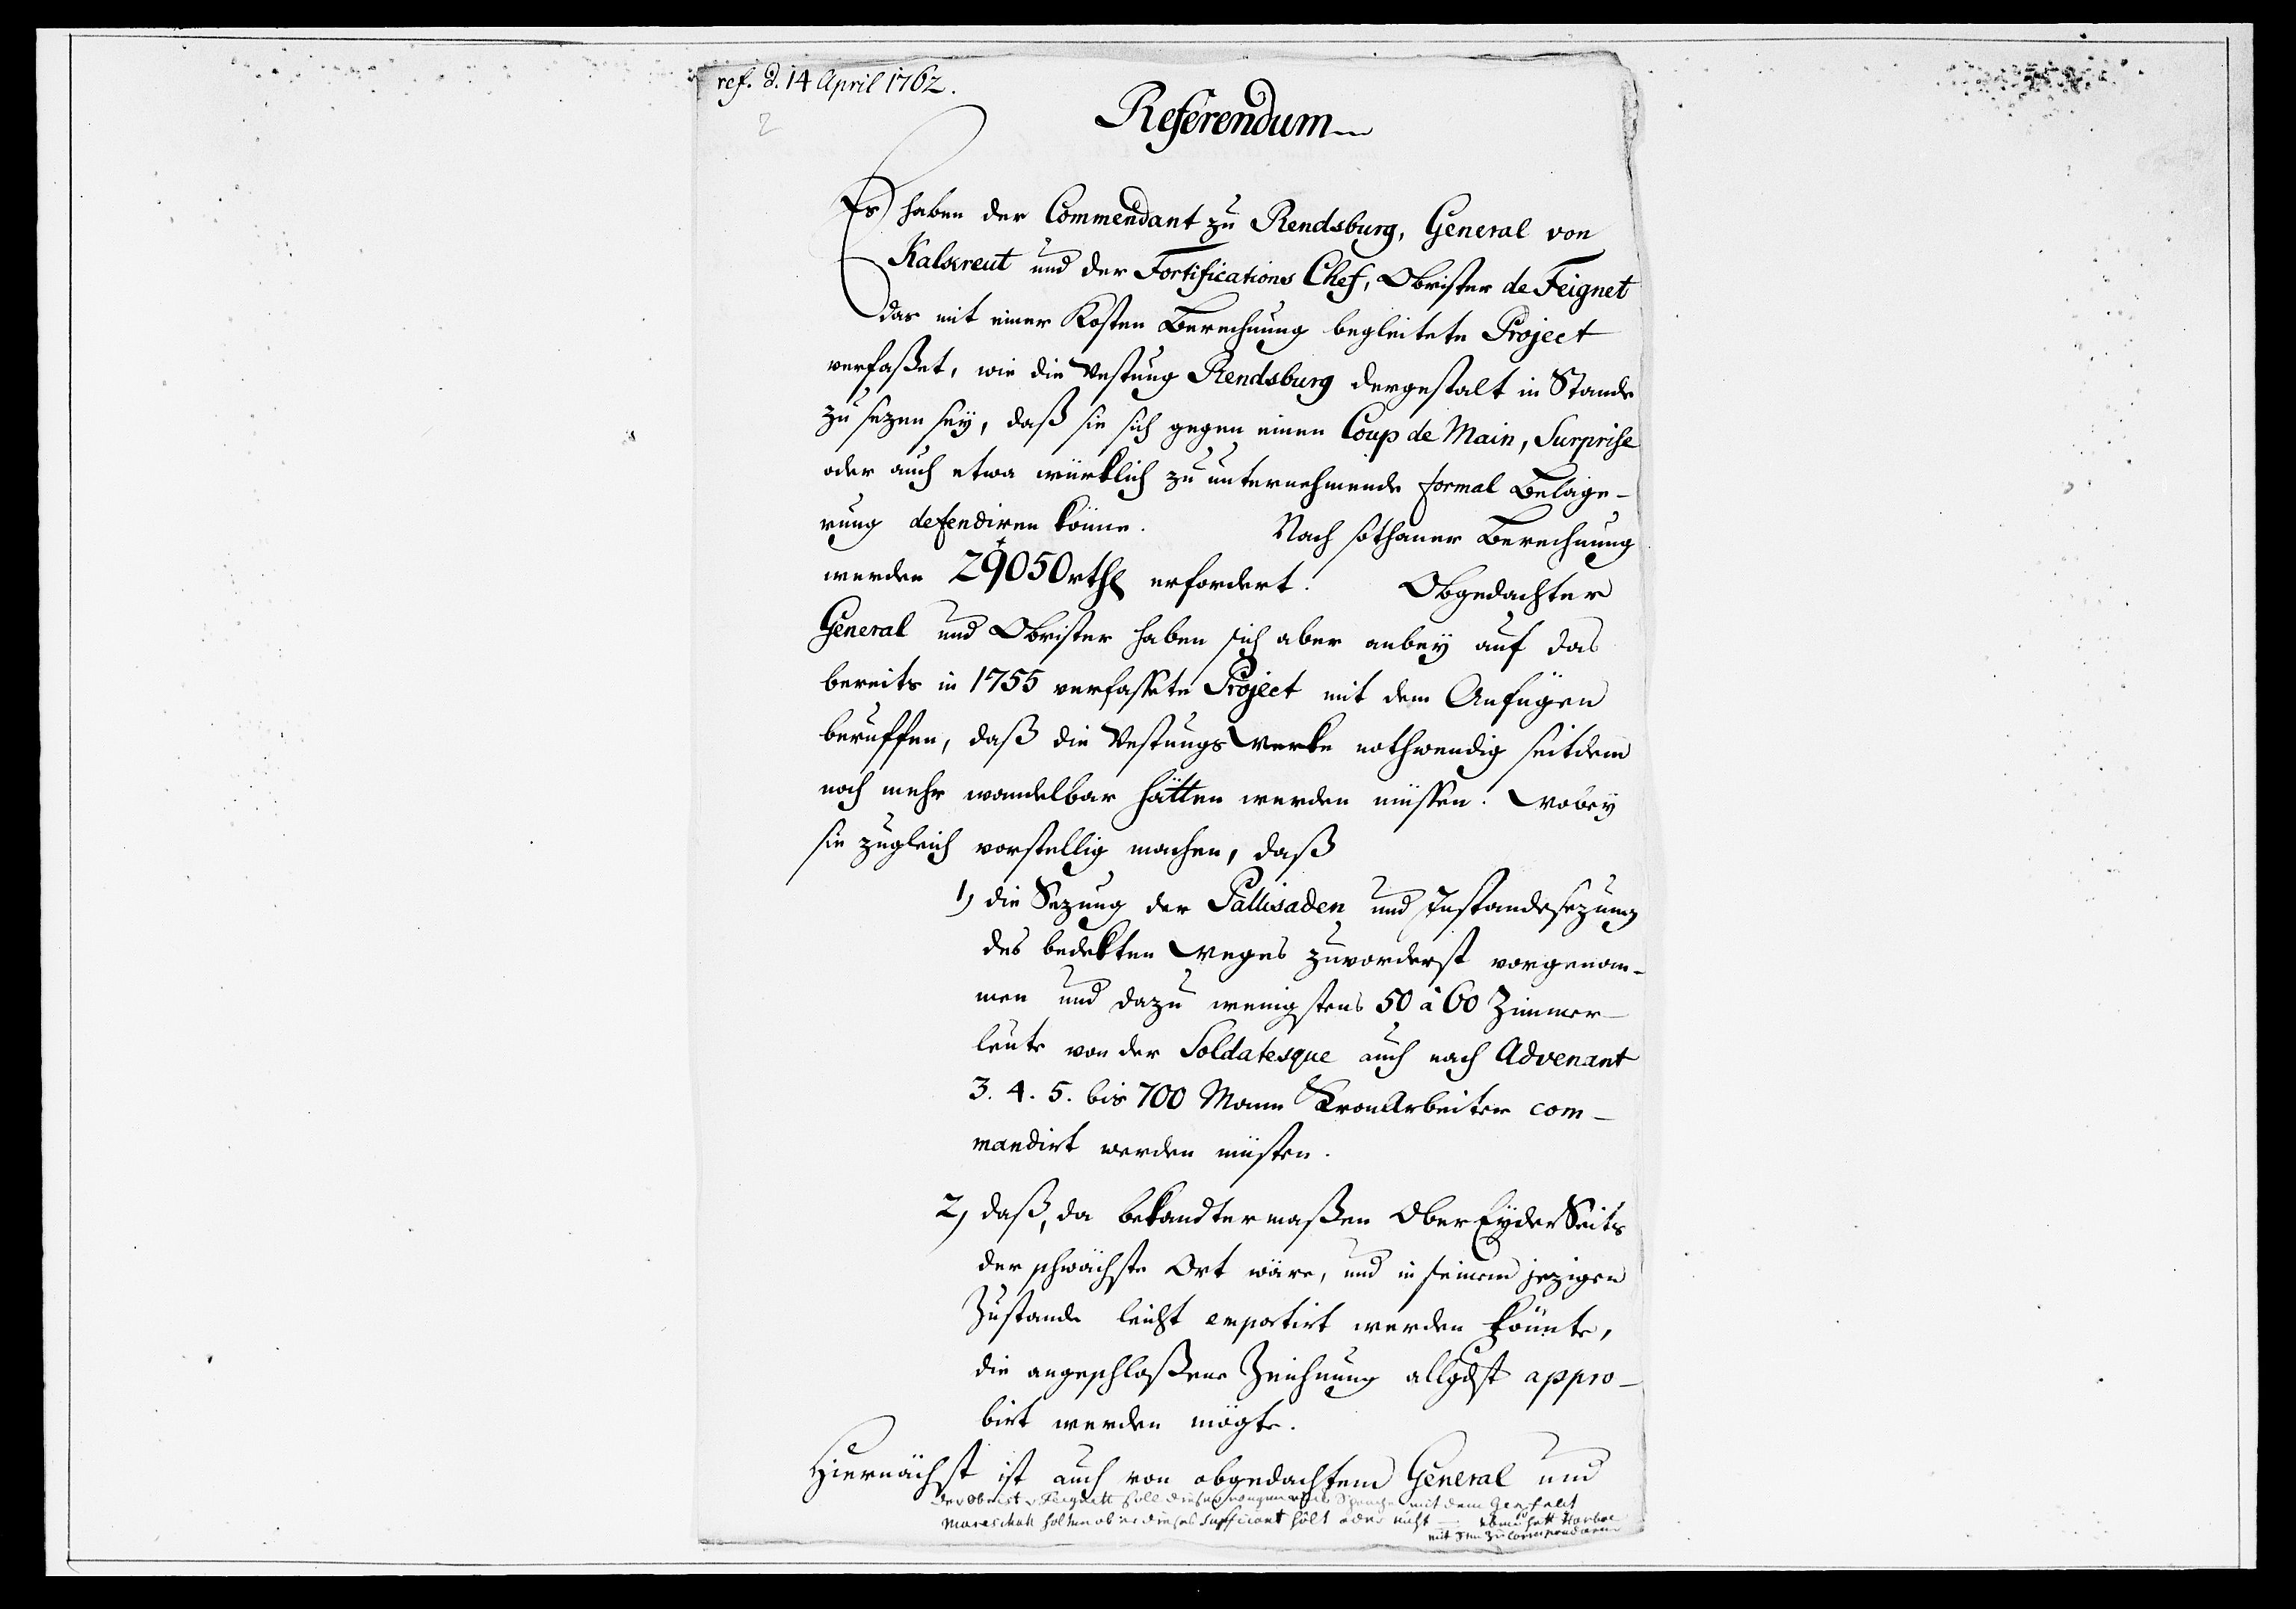 ref. d. 14 April 1762.
2
Referendum
Es haben der Commendant zu Rendsburg, General von
Kalckreut und der Fortifications Chef, Obrister de Feignet
das mit einer Kosten Berechnung begleitete Project
verfaßet, wie die Vestung Rendsburg dergestalt in Stande
zu sezen sey, daß sie sich gegen einen Coup de Main, Surprise
oder auch etwa würklich zu unternehmende formal Belage-
rung defendiren könne. Nach sothaner Berechnung
werden 29050 rthl erfordert. Obgedachter
General und Obrister haben sich aber anbey auf das
bereits in 1755 verfassete Project mit dem Anfügen
beruffen, daß die Vestungs Werke nothwendig seitdem
noch mehr wandelbar hätten werden müssen. Wobey
sie zugleich vorstellig machen, daß
1) die Sezung der Pallisaden und Instandesezung
des bedekten Weges zuvorderst vorgenom-
men und dazu wenigstens 50 â 60 Zimmer-
leute von der Soldatesque auch nach Advenant
3. 4. 5. bis 700 Mann KronArbeiter com-
mandirt werden müsten.
2) daß, da bekandtermaßen OberEyderSeits
der schwächste Ort wäre, und in seinem jezigen
Zustande leicht emportirt werden könnte,
die angeschloßene Zeichnung allgdst appro-
birt werden mögte.
Hiernächst ist auch von obgedachtem General und
Der Obrist v Feignett soll dieserwegen mit dem Gen felt
Mareschall ob er dieses sufficient hält oder nicht —
mit Ihm zu correspondieren